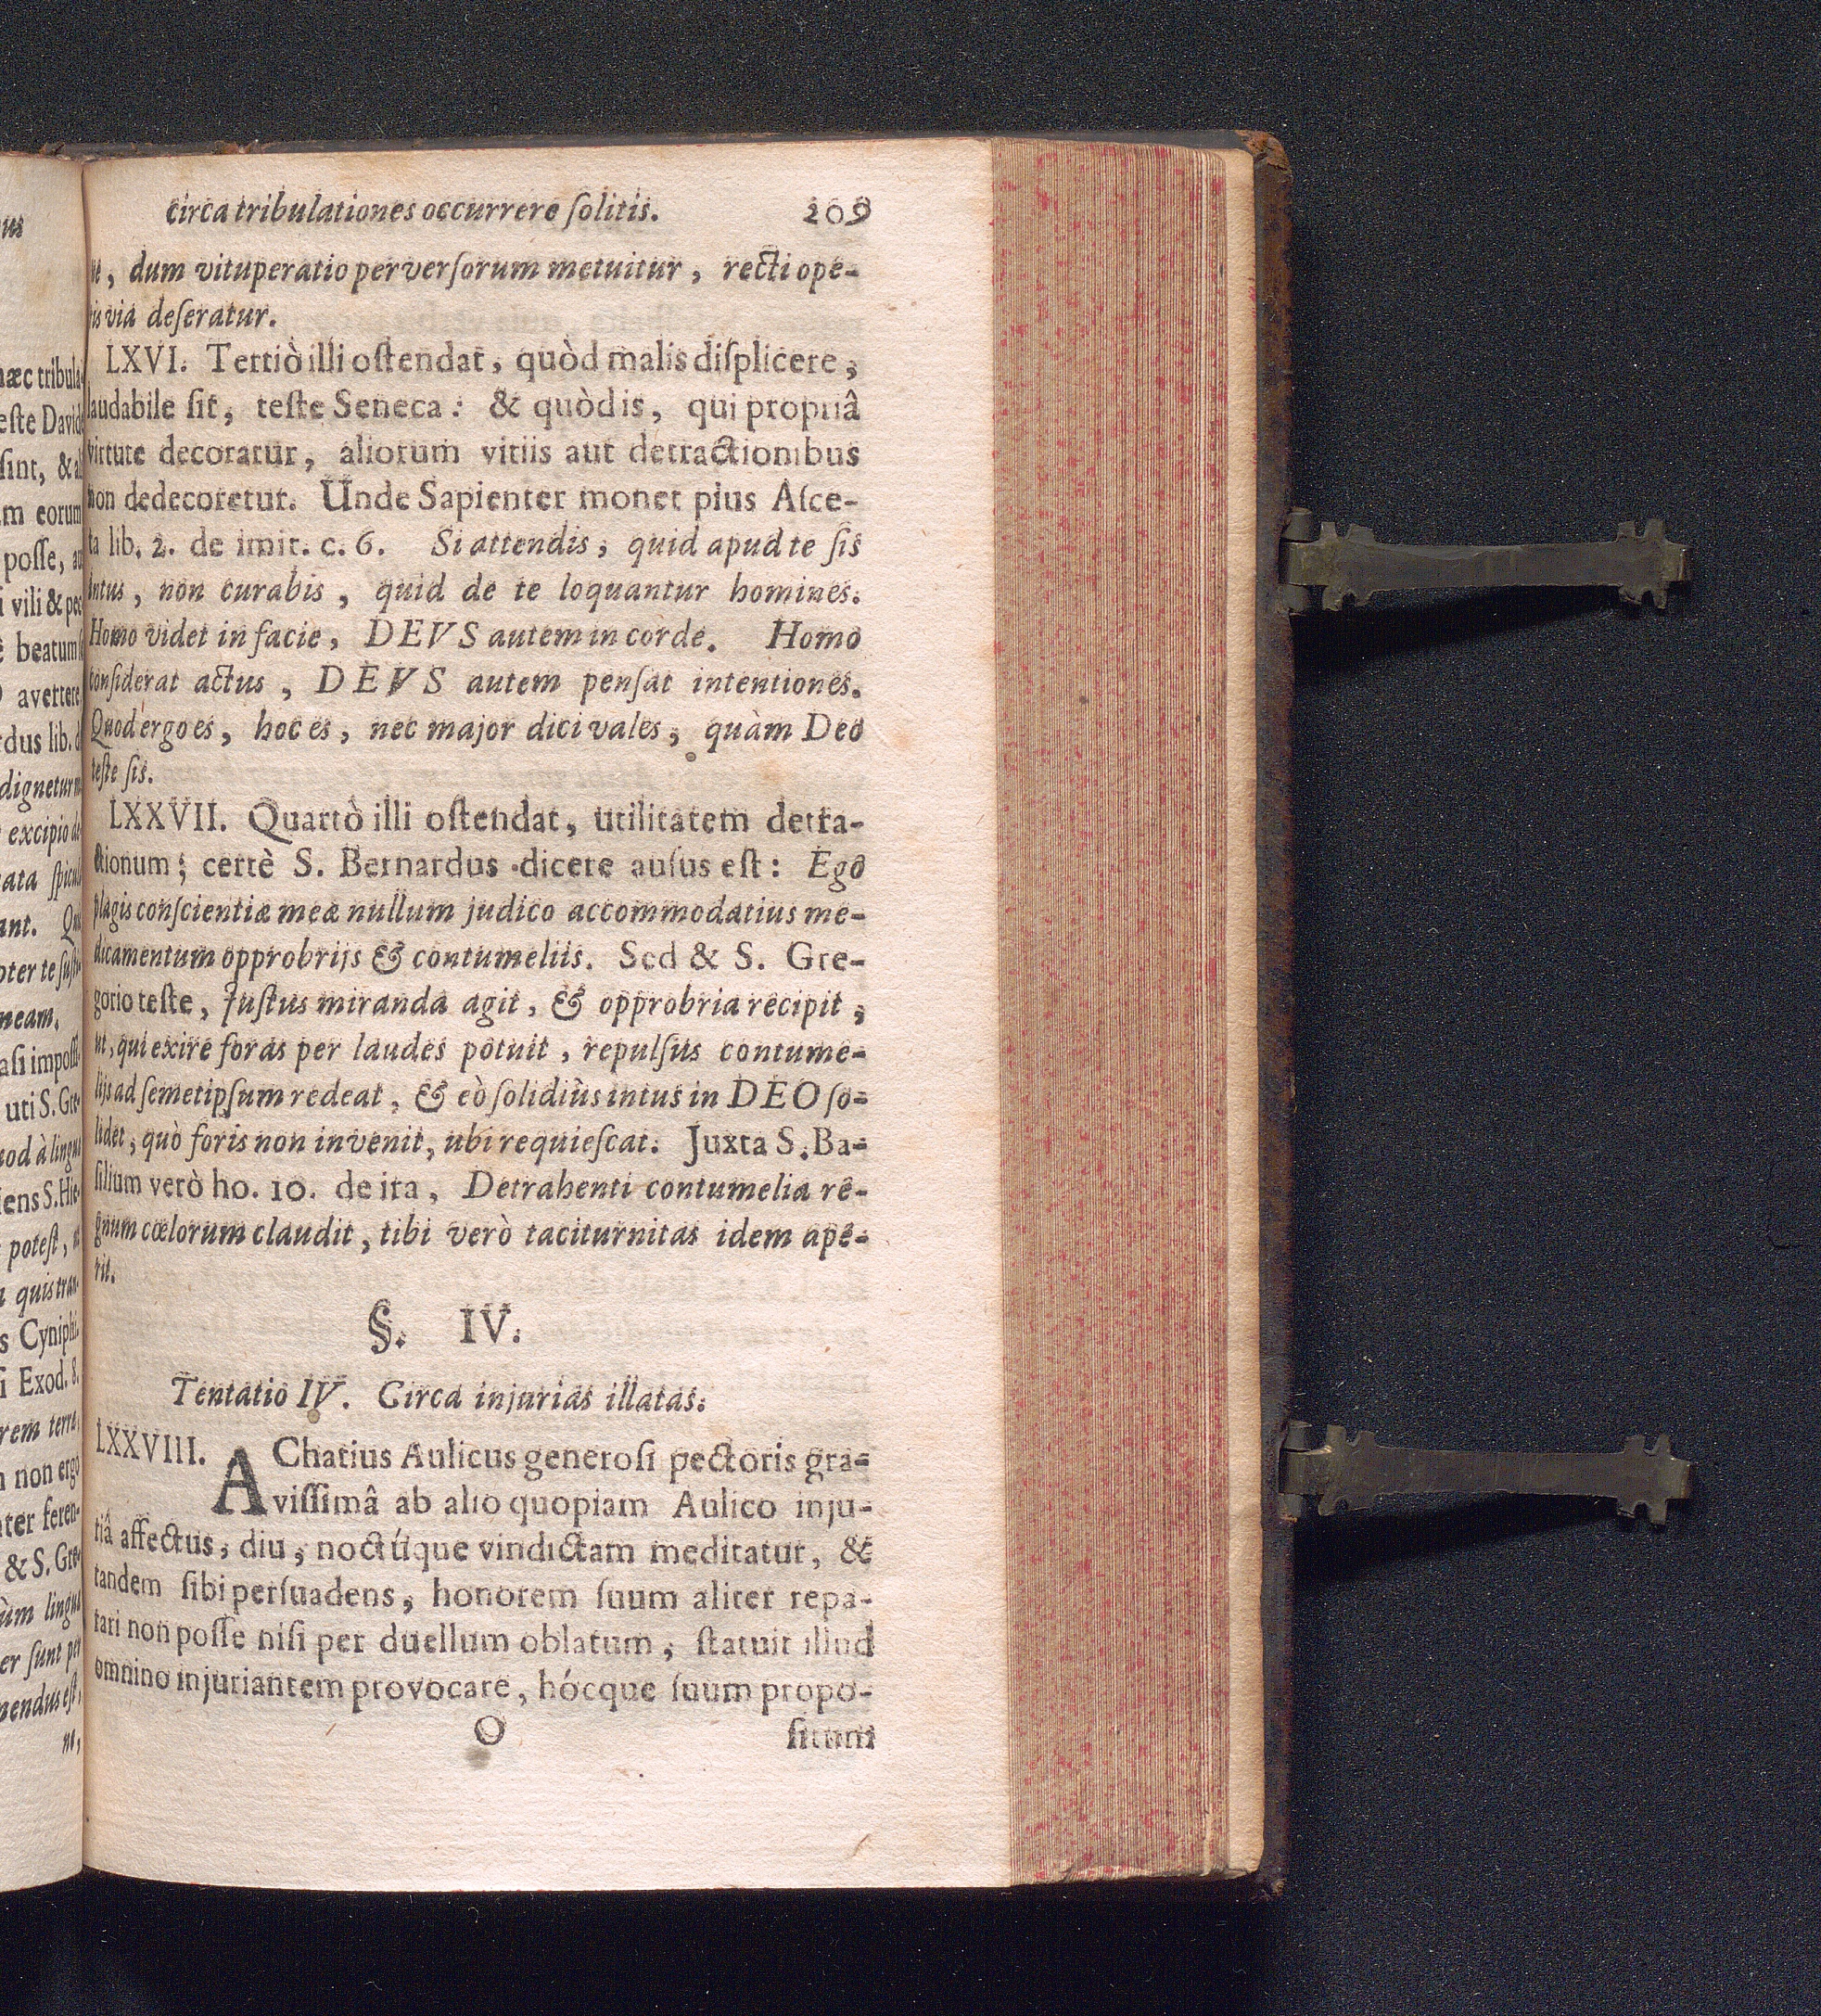 circa tribulationes occurrere ſolitis. 209
ne, dum vituperatio perverſorum metuitur, recti ope-
ris via deſeratur.
LXVI. Tertiò illi oſtendat, quòd malis diſplicere,
laudabile ſit, teſte Seneca: & quòd is, qui propriâ
virtute decoratur, aliorum vitiis aut detractionibus
non dedecoretur. Unde Sapienter monet pius Aſce-
ta lib. 2. de imit. c. 6. Si attendis, quid apud te ſis
intus, non curabis, quid de te loquantur homines.
Homo videt in facie, DEVS autem in corde. Homo
conſiderat actus, DEVS autem penſat intentiones.
Quod ergo es, hoc es, nec major dici vales, quàm Deo
teſte ſis.
LXXVII. Quartò illi oſtendat, utilitatem detra-
ctionum; certè S. Bernardus dicere auſus eſt: Ego
plagis conſcientiæ meæ nullum judico accommodatius me-
dicamentum opprobrijs & contumeliis. Sed & S. Gre-
gorio teſte, Juſtus miranda agit, & opprobria recipit,
ut, qui exire foras per laudes potuit, repulſus contume-
lijs ad ſemetipſum redeat, & eò ſolidiùs intus in DEO ſo-
lidet, quò foris non invenit, ubi requieſcat. Juxta S. Ba-
ſilium verò ho. 10. de ira, Detrahenti contumelia re-
gnum cœlorum claudit, tibi verò taciturnitas idem ape-
rit.
§. IV.
Tentatio IV. Circa injurias illatas.
LXXVIII. AChatius Aulicus generoſi pectoris gra-
viſſimâ ab alio quopiam Aulico inju-
riâ affectus, diu, noctúque vindictam meditatur, &
tandem ſibi perſuadens, honorem ſuum aliter repa-
rari non poſſe niſi per duellum oblatum, ſtatuit illud
omnino injuriantem provocare, hócque ſuum propo-
O ſitum